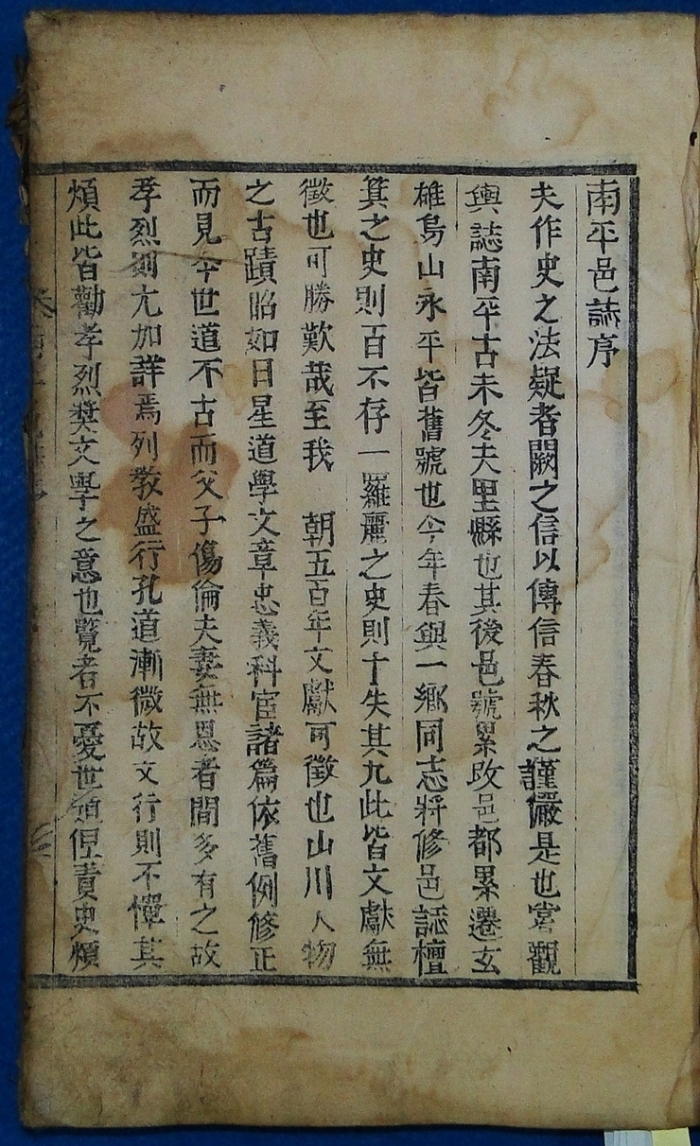 南平邑誌序
夫作史之法疑者闕之信以傳信春秋之謹嚴是也嘗觀
輿誌南平古未冬夫里縣也其後邑號累改邑都累遷玄
雄島山永平皆舊號也今年春與一鄉同志將修邑誌檀
箕之史則百不存一羅麗之史則十失其九此皆文獻無
徵也可勝歎哉至我 朝五百年文獻可徵也山川人物
之古蹟昭如日星道學文章忠義科宦諸篇依舊例修正
而見今世道不古而父子傷倫夫妻無恩者間多有之故
孝烈則尤加詳焉列教盛行孔道漸微故文行則不憚其
煩此皆勸孝烈奬文學之意也覽者不憂世道但責史煩